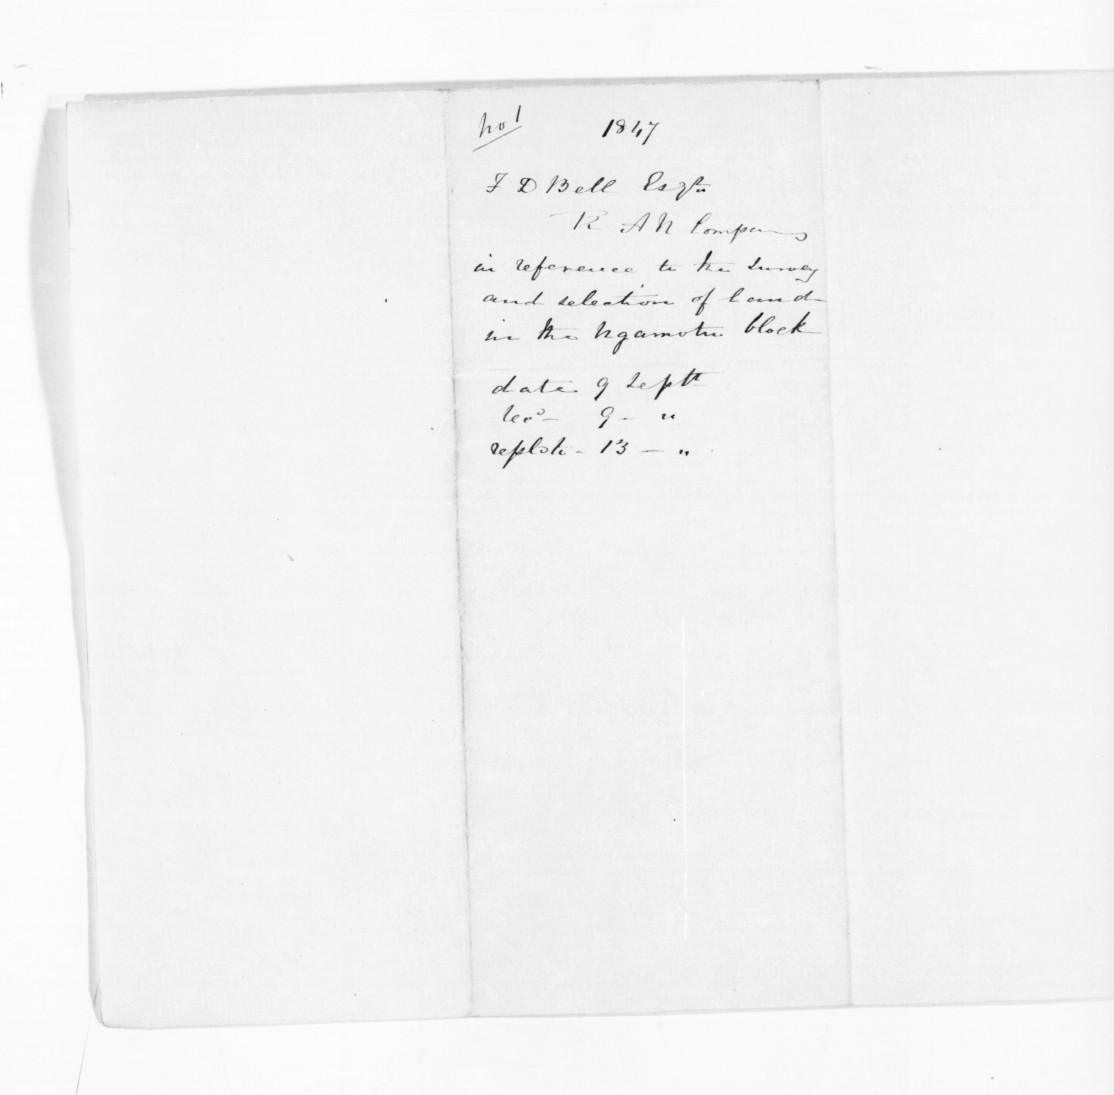 No 1 1847
F D Bell Esqre
R A N Company
in reference to the survey
and selection of land
in the Ngamotu block
date 9 Septr
recd - 9 - "
replied - 13 - "